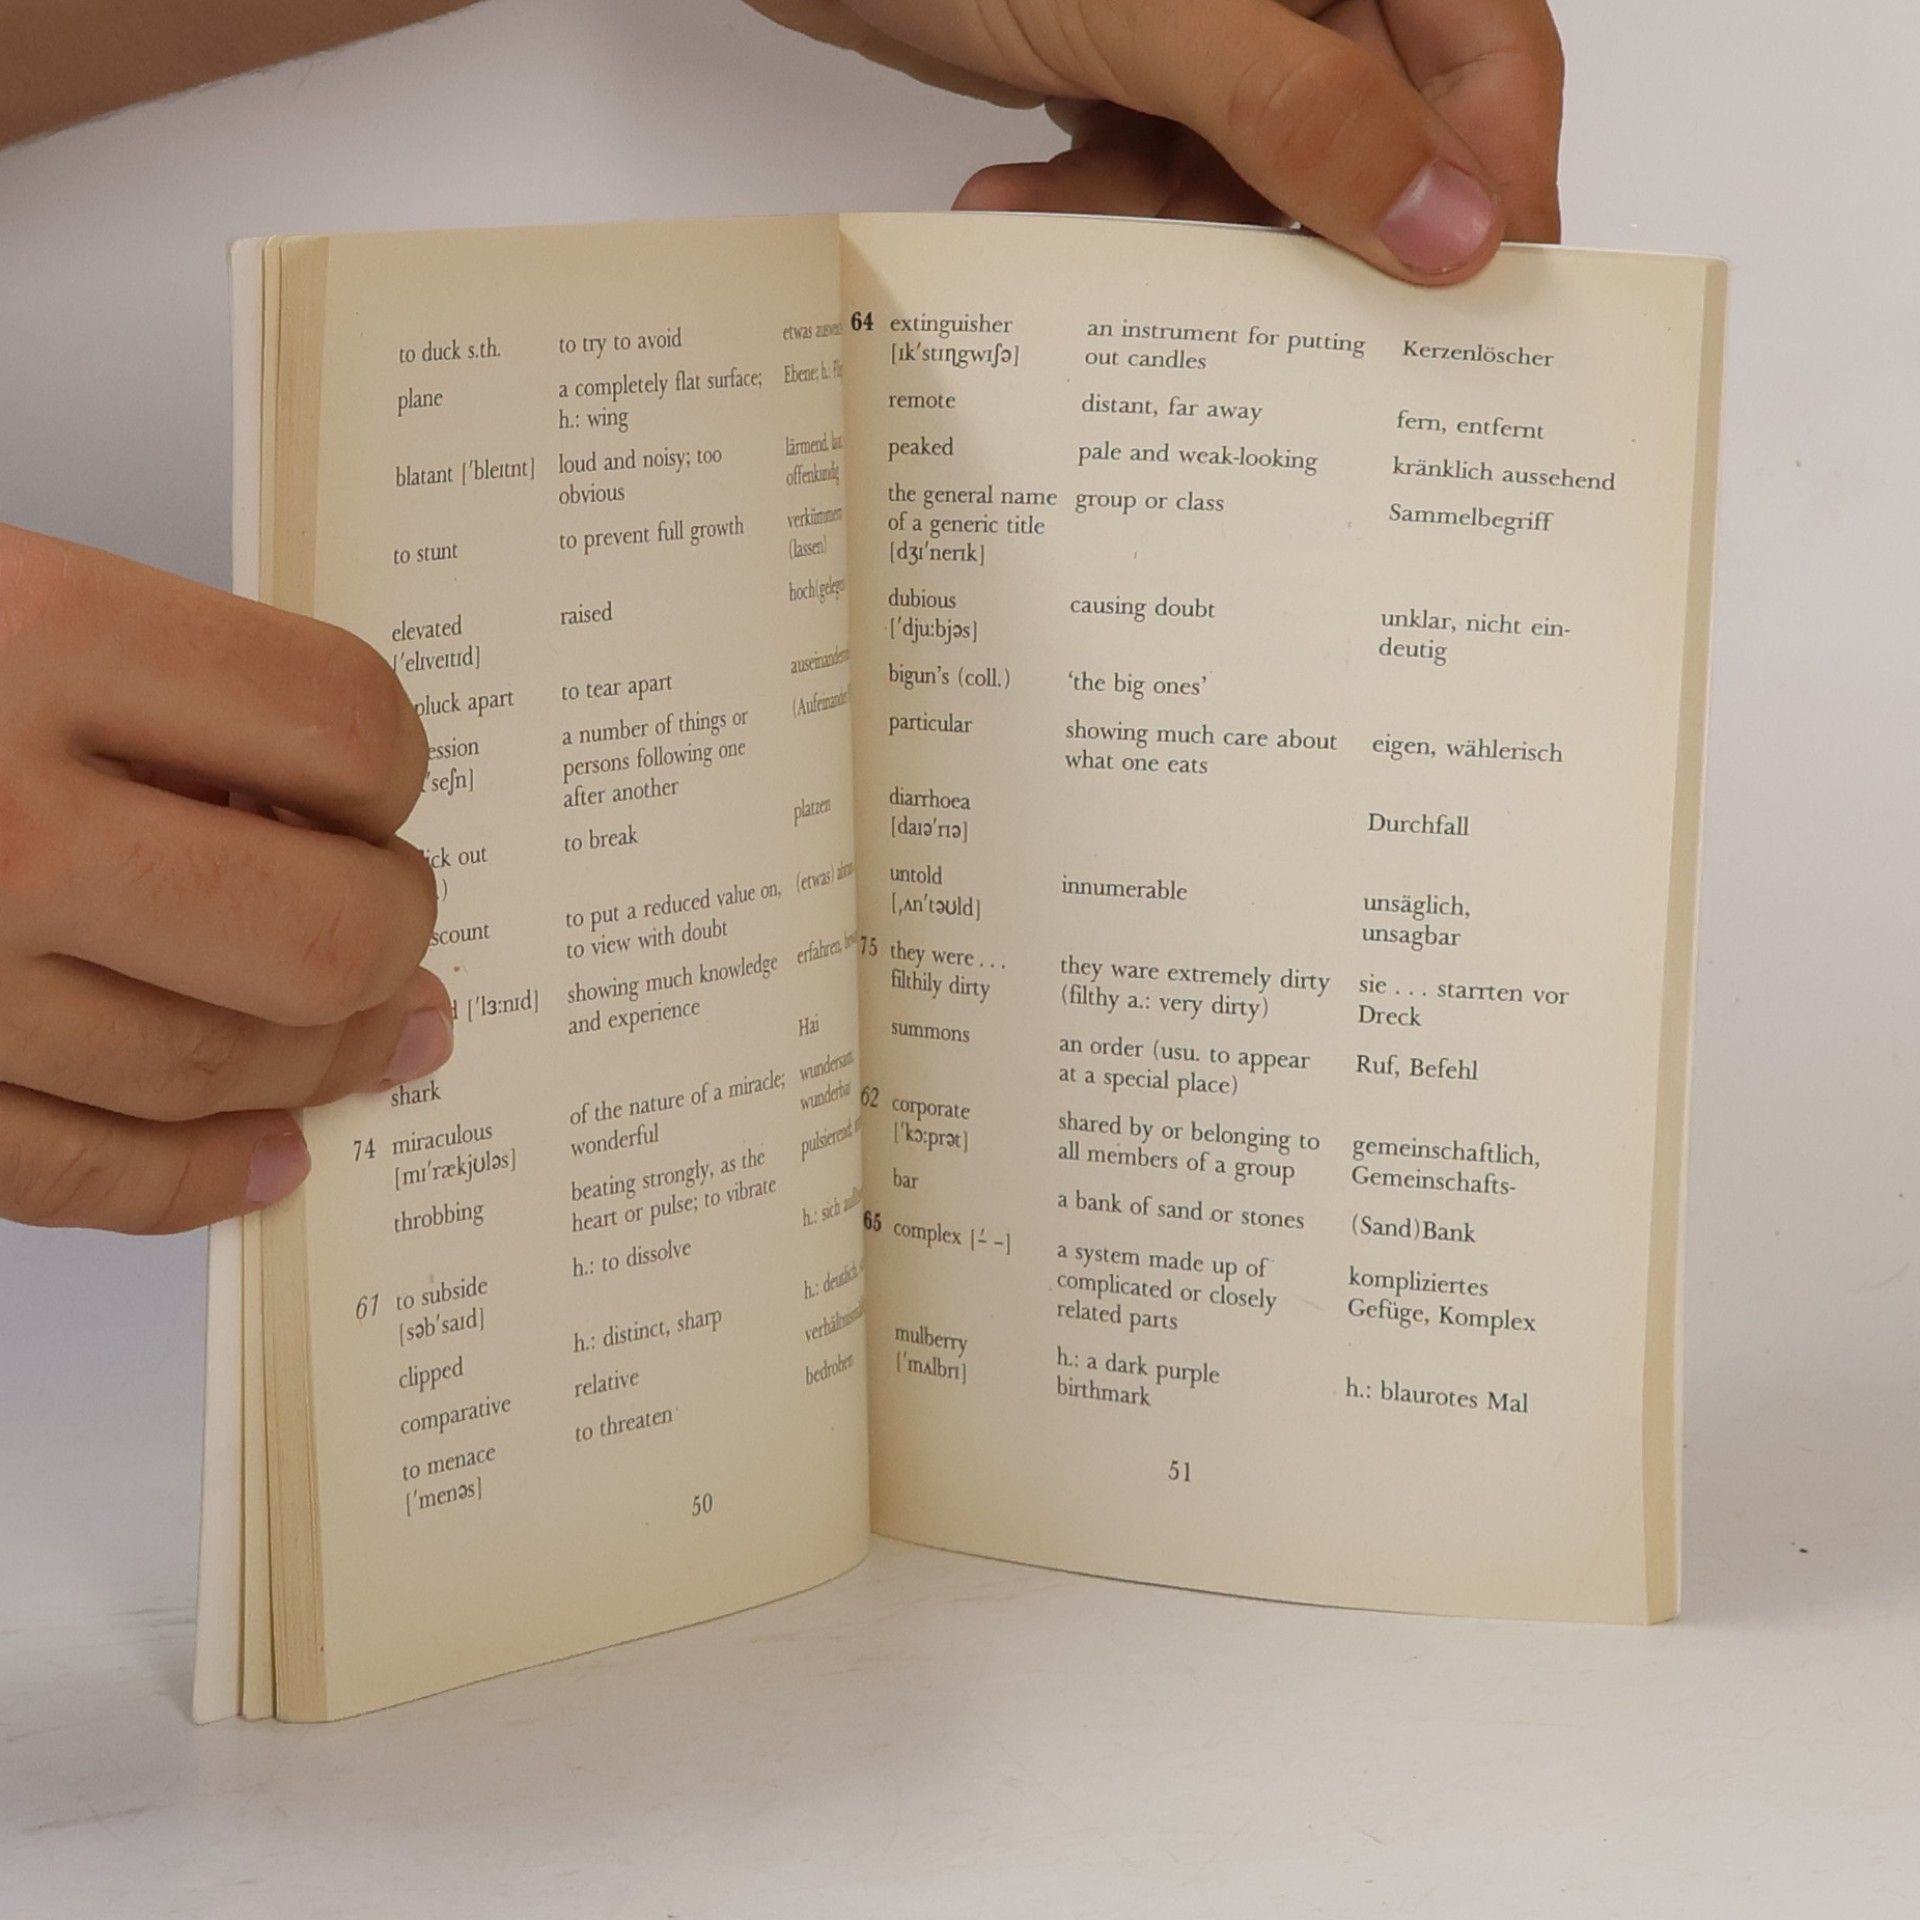 to duck s.th. to try to avoid etwas
plane a completely flat surface; Ebene; h.:
h.: wing
blatant [ˈbleɪtnt] loud and noisy; too lärmend,
obvious offenkundig
to stunt to prevent full growth verkümmern
(lassen)
elevated raised
[ˈelɪveɪtɪd]
pluck apart to tear apart
a number of things or
persons following one
after another
out to break platzen
to put a reduced value on, (etwas)
to view with doubt
[ˈlɜːnɪd] showing much knowledge erfahren,
and experience
shark Hai
74 miraculous of the nature of a miracle; wundersam,
[mɪˈrækjʊləs] wonderful wunderbar
throbbing beating strongly, as the pulsierend,
heart or pulse; to vibrate
61 to subside h.: to dissolve h.: sich
[səbˈsaɪd]
clipped h.: distinct, sharp h.: deutlich,
comparative relative
to menace to threaten bedrohen
[ˈmenəs]
50
64 extinguisher an instrument for putting Kerzenlöscher
[ɪkˈstɪŋgwɪʃə] out candles
remote distant, far away fern, entfernt
peaked pale and weak-looking kränklich aussehend
the general name group or class Sammelbegriff
of a generic title
[dʒɪˈnerɪk]
dubious causing doubt unklar, nicht ein-
[ˈdjuːbjəs] deutig
bigun's (coll.) ‘the big ones’
particular showing much care about eigen, wählerisch
what one eats
diarrhoea Durchfall
[daɪəˈrɪə]
untold innumerable unsäglich,
[ˌʌnˈtəʊld] unsagbar
75 they were . . . they ware extremely dirty sie . . . starrten vor
filthily dirty (filthy a.: very dirty) Dreck
summons an order (usu. to appear Ruf, Befehl
at a special place)
62 corporate shared by or belonging to gemeinschaftlich,
[ˈkɔːprət] all members of a group Gemeinschafts-
bar a bank of sand or stones (Sand)Bank
65 complex [ˊ– –] a system made up of kompliziertes
complicated or closely Gefüge, Komplex
related parts
mulberry h.: a dark purple h.: blaurotes Mal
[ˈmʌlbrɪ] birthmark
51